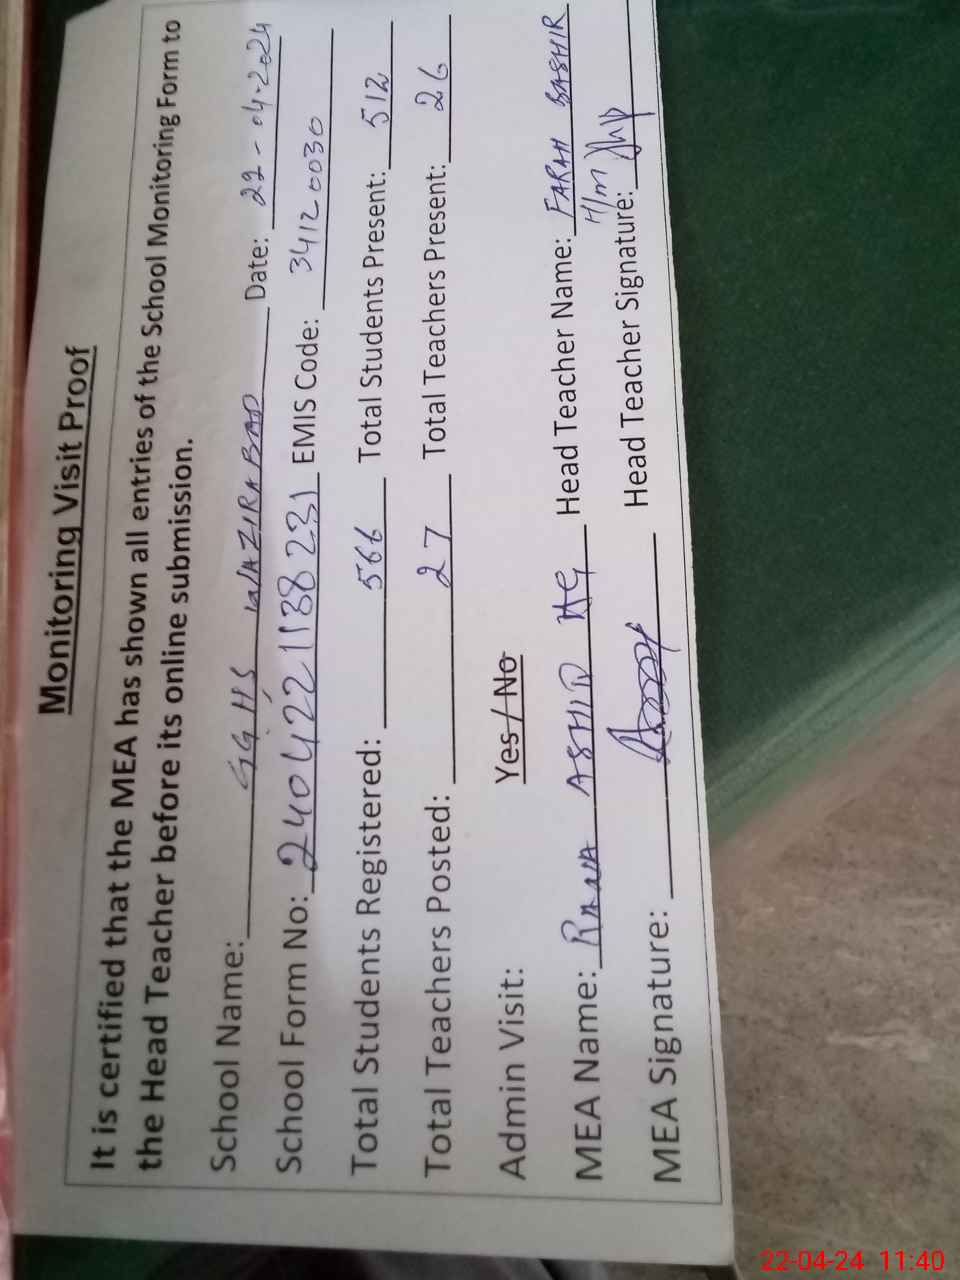 Monitoring Visit Proof
It is certified that the MEA has shown all entries of the School Monitoring Form to
the Head Teacher before its online submission.
School Name: GGHS WAZIRABAD Date: 22-04-2024
School Form No: 2404221138231 EMIS Code: 34120030
Total Students Registered: 566 Total Students Present: 512
Total Teachers Posted: 27 Total Teachers Present: 26
Admin Visit: Yes / No
MEA Name: RANA ASHIQ Head Teacher Name: FARAH BASHIR
H/M
MEA Signature: Head Teacher Signature:
22-04-24 11:40